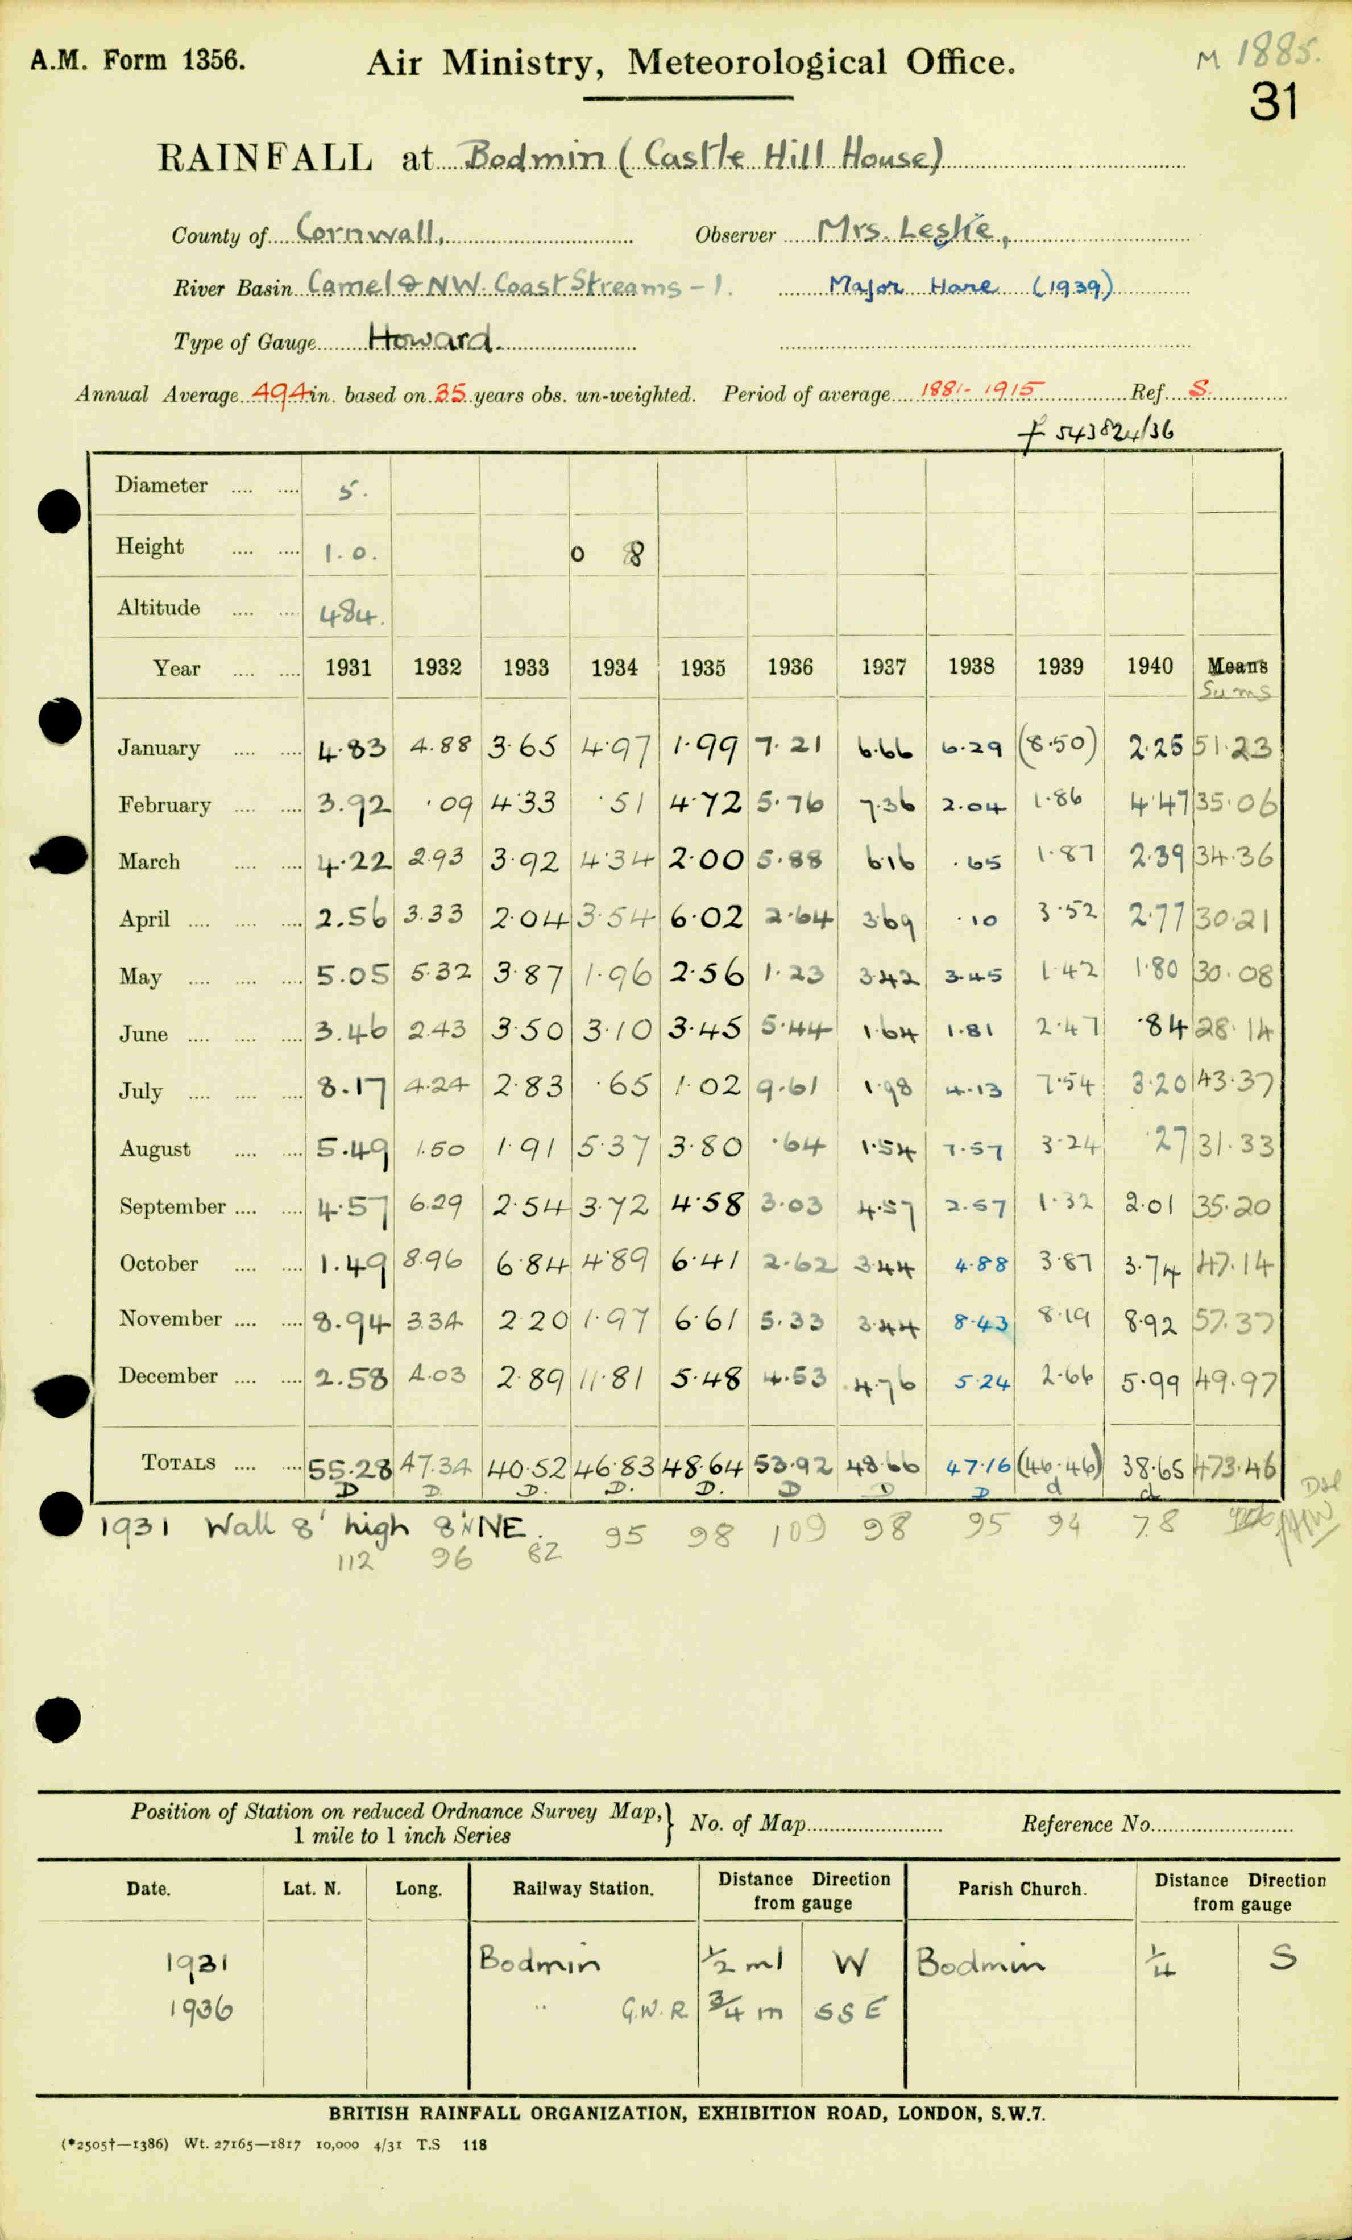 A.M. Form 1356. Air Ministry, Meteorological Office. M 1885.
31
RAINFALL at Bodmin (Castle Hill House)
County of Cornwall, Observer Mrs. Leslie,
River Basin Camel & NW. Coast Streams - 1. Major Hare (1939)
Type of Gauge Howard.
Annual Average 49.4 in. based on 35 years obs. un-weighted. Period of average 1881-1915 Ref. S.
f 543824/36
Diameter .... .... 5.
Height .... .... 1.0. 0 8
Altitude .... .... 484.
Year .... .... 1931 1932 1933 1934 1935 1936 1937 1938 1939 1940 Means
Sums
January .... .... 4.83 4.88 3.65 4.97 1.99 7.21 6.66 6.29 (8.50) 2.25 51.23
February .... .... 3.92 .09 4.33 .51 4.72 5.76 7.36 2.04 1.86 4.47 35.06
March .... .... 4.22 2.93 3.92 4.34 2.00 5.88 6.16 .65 1.87 2.39 34.36
April .... .... .... 2.56 3.33 2.04 3.54 6.02 2.64 3.69 .10 3.52 2.77 30.21
May .... .... .... 5.05 5.32 3.87 1.96 2.56 1.23 3.42 3.45 1.42 1.80 30.08
June .... .... .... 3.46 2.43 3.50 3.10 3.45 5.44 1.64 1.81 2.47 .84 28.14
July .... .... .... 8.17 4.24 2.83 .65 1.02 9.61 1.98 4.13 7.54 3.20 43.37
August .... .... 5.49 1.50 1.91 5.37 3.80 .64 1.54 7.57 3.24 .27 31.33
September .... .... 4.57 6.29 2.54 3.72 4.58 3.03 4.57 2.57 1.32 2.01 35.20
October .... .... 1.49 8.96 6.84 4.89 6.41 2.62 3.44 4.88 3.87 3.74 47.14
November .... .... 8.94 3.34 2.20 1.97 6.61 5.33 3.44 8.43 8.19 8.92 57.37
December .... .... 2.58 4.03 2.89 11.81 5.48 4.53 4.76 5.24 2.66 5.99 49.97
TOTALS .... .... 55.28 47.34 40.52 46.83 48.64 53.92 48.66 47.16 (46.46) 38.65 473.46
D D D. D. D. D D D d d
1931 Wall 8' high 8'NNE. 95 98 109 98 95 94 78
112 96 82
Position of Station on reduced Ordnance Survey Map,} No. of Map Reference No.
1 mile to 1 inch Series
Date. Lat. N. Long. Railway Station. Distance Direction from gauge Parish Church. Distance Direction from gauge
1931 Bodmin 1/2 ml W Bodmin 1/4 S
1936 " G.W.R 3/4 m SSE
BRITISH RAINFALL ORGANIZATION, EXHIBITION ROAD, LONDON, S.W.7.
(*2505†—1386) Wt. 27165—1817 10,000 4/31 T.S 118